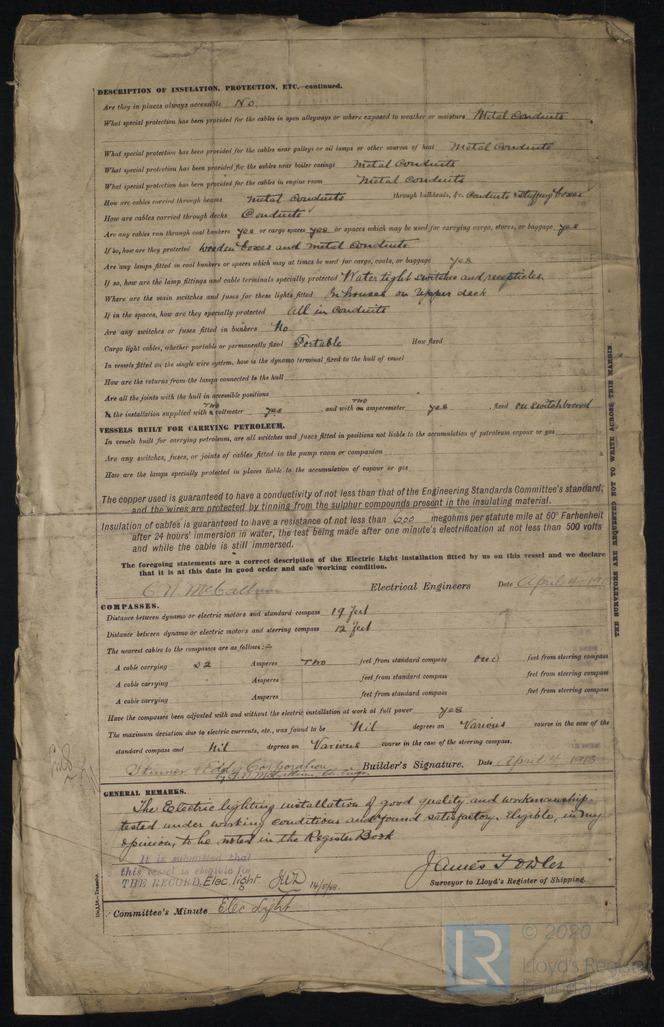 DESCRIPTION OF INSULATION, PROTECTION, ETC.—continued.
Are they in places always accessible No.
What special protection has been provided for the cables in open alleyways or where exposed to weather or moisture Metal Conduits
What special protection has been provided for the cables near galleys or oil lamps or other sources of heat Metal Conduits
What special protection has been provided for the cables near boiler casings Metal Conduits
What special protection has been provided for the cables in engine room Metal Conduits
How are cables carried through beams Metal Conduits through bulkheads, &c. Conduits & stuffing boxes
How are cables carried through decks Conduits
Are any cables run through coal bunkers yes or cargo spaces yes or spaces which may be used for carrying cargo, stores, or baggage yes
If so, how are they protected wooden boxes and metal conduits
Are any lamps fitted in coal bunkers or spaces which may at times be used for cargo, coals, or baggage yes
If so, how are the lamp fittings and cable terminals specially protected Water tight switches and recepticles.
Where are the main switches and fuses for these lights fitted In houses on Upper deck
If in the spaces, how are they specially protected All in conduits
Are any switches or fuses fitted in bunkers No
Cargo light cables, whether portable or permanently fixed Portable How fixed
In vessels fitted on the single wire system, how is the dynamo terminal fixed to the hull of vessel
How are the returns from the lamps connected to the hull
Are all the joints with the hull in accessible positions
Is the installation supplied with a Two voltmeter yes and with an Two amperemeter yes, fixed on switchboard
VESSELS BUILT FOR CARRYING PETROLEUM.
In vessels built for carrying petroleum, are all switches and fuses fitted in positions not liable to the accumulation of petroleum vapour or gas
Are any switches, fuses, or joints of cables fitted in the pump room or companion
How are the lamps specially protected in places liable to the accumulation of vapour or gas
The copper used is guaranteed to have a conductivity of not less than that of the Engineering Standards Committee's standard,
and the wires are protected by tinning from the sulphur compounds present in the insulating material.
Insulation of cables is guaranteed to have a resistance of not less than 600 megohms per statute mile at 60° Farhenheit
after 24 hours' immersion in water, the test being made after one minute's electrification at not less than 500 volts
and while the cable is still immersed.
The foregoing statements are a correct description of the Electric Light installation fitted by us on this vessel and we declare
that it is at this date in good order and safe working condition.
Electrical Engineers Date April 4
COMPASSES.
Distance between dynamo or electric motors and standard compass 19 feet
Distance between dynamo or electric motors and steering compass 12 feet
The nearest cables to the compasses are as follows:—
A cable carrying 22 Amperes Two feet from standard compass One feet from steering compass
A cable carrying Amperes feet from standard compass feet from steering compass
A cable carrying Amperes feet from standard compass feet from steering compass
Have the compasses been adjusted with and without the electric installation at work at full power yes
The maximum deviation due to electric currents, etc., was found to be Nil degrees on Various course in the case of the
standard compass and Nil degrees on Various course in the case of the steering compass.
Skinner & Eddy Corporation Builder's Signature. Date April 4, 1918
GENERAL REMARKS.
The Electric lighting installation of good quality and workmanship.
tested under working conditions and found satisfactory. Eligible, in my
opinion, to be noted in the Register Book
It is submitted that
this vessel is eligible for
THE RECORD. Elec light 14/5/18.
James Fowler
Surveyor to Lloyd's Register of Shipping.
Committee's Minute Elec Light
THE SURVEYORS ARE REQUESTED NOT TO WRITE ACROSS THIS MARGIN
LR
© 2020
Lloyd's Register
Foundation